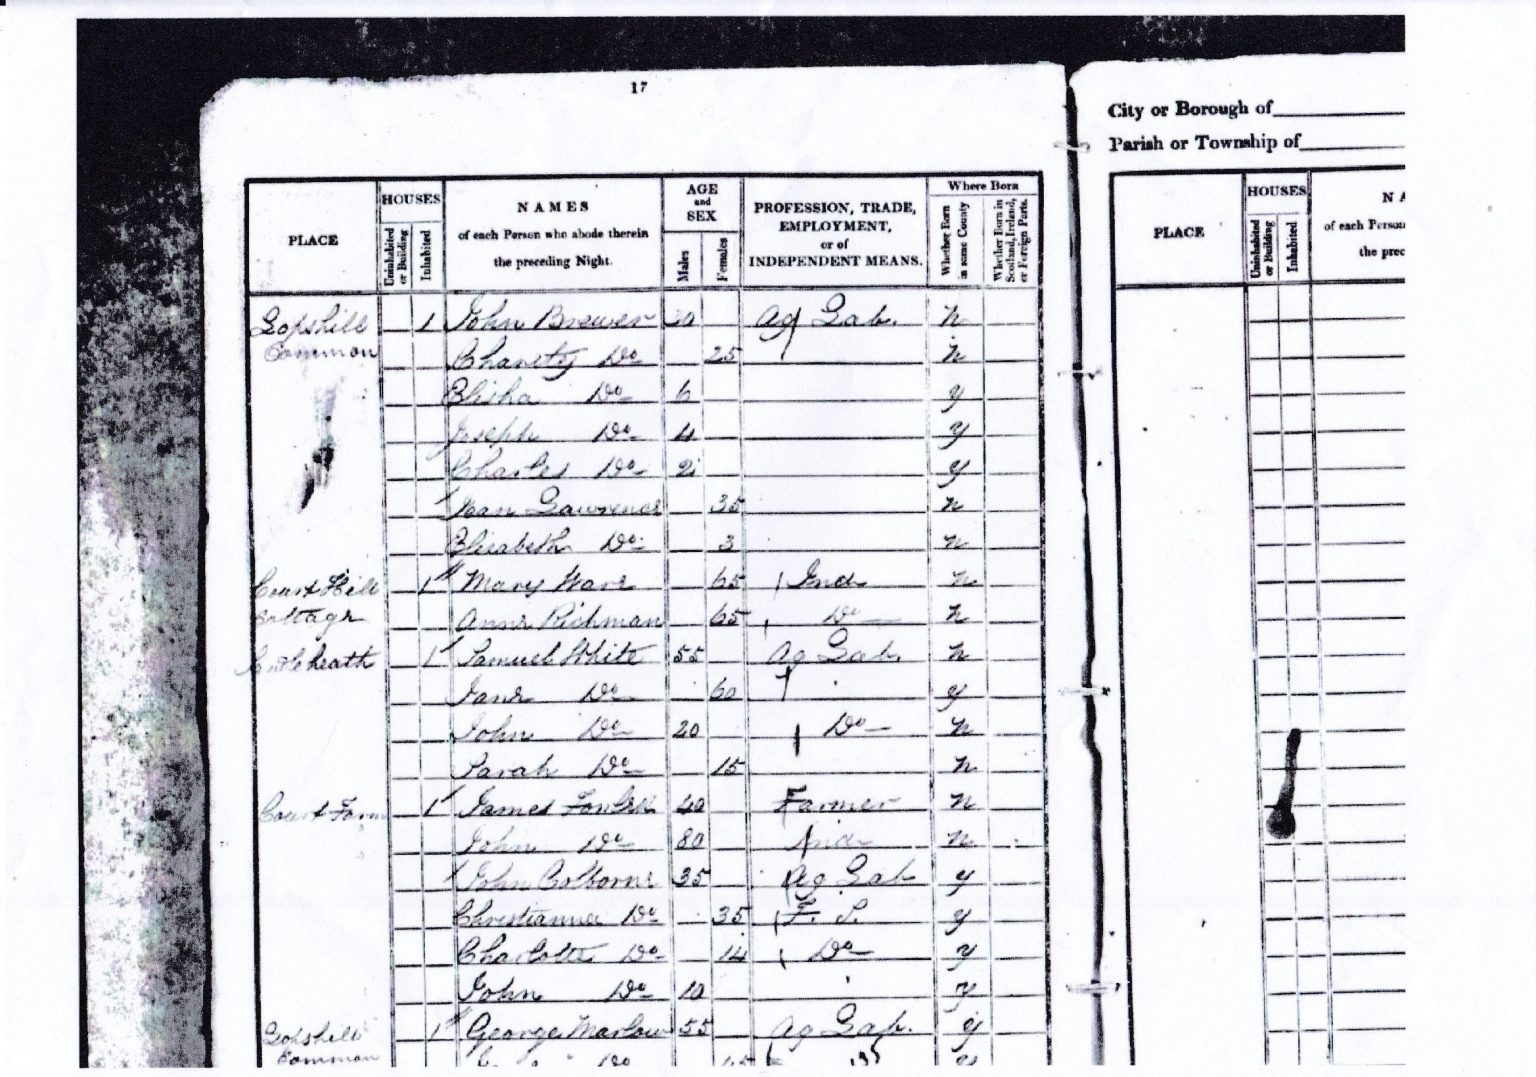 17
City or Borough of
Parish or Township of
PLACE HOUSES Uninhabited or Building Inhabited NAMES of each Person who abode therein the preceding Night. AGE and SEX Males Females PROFESSION, TRADE, EMPLOYMENT, or of INDEPENDENT MEANS. Where Born Whether Born in same County Whether Born in Scotland, Ireland, or Foreign Parts.
PLACE HOUSES Uninhabited or Building Inhabited NA
of each Person
the prec
Gopshill 1 John Brewer Ag Lab. n
Common Charety Do 25 n
Elisha Do 6 y
Joseph Do 4 y
Charles Do 2 y
Lawrence 35 n
Elizabeth Do 3 n
Court Hill 1 Mary Ware 65 Ind n
Cottage Anne Richman 65 Do n
heath 1 Samuel White 55 Ag Lab. n
Jane Do 60 y
John Do 20 Do n
Sarah Do 15 n
Court Farm 1 James 40 Farmer n
John Do 80 Ind n
John Colborne 35 Ag Lab y
Christianna Do 35 F. S. y
Charlotte Do 14 Do y
John Do 10 y
Gopshill 1 George Marlow 55 Ag Lab. y
Common Do